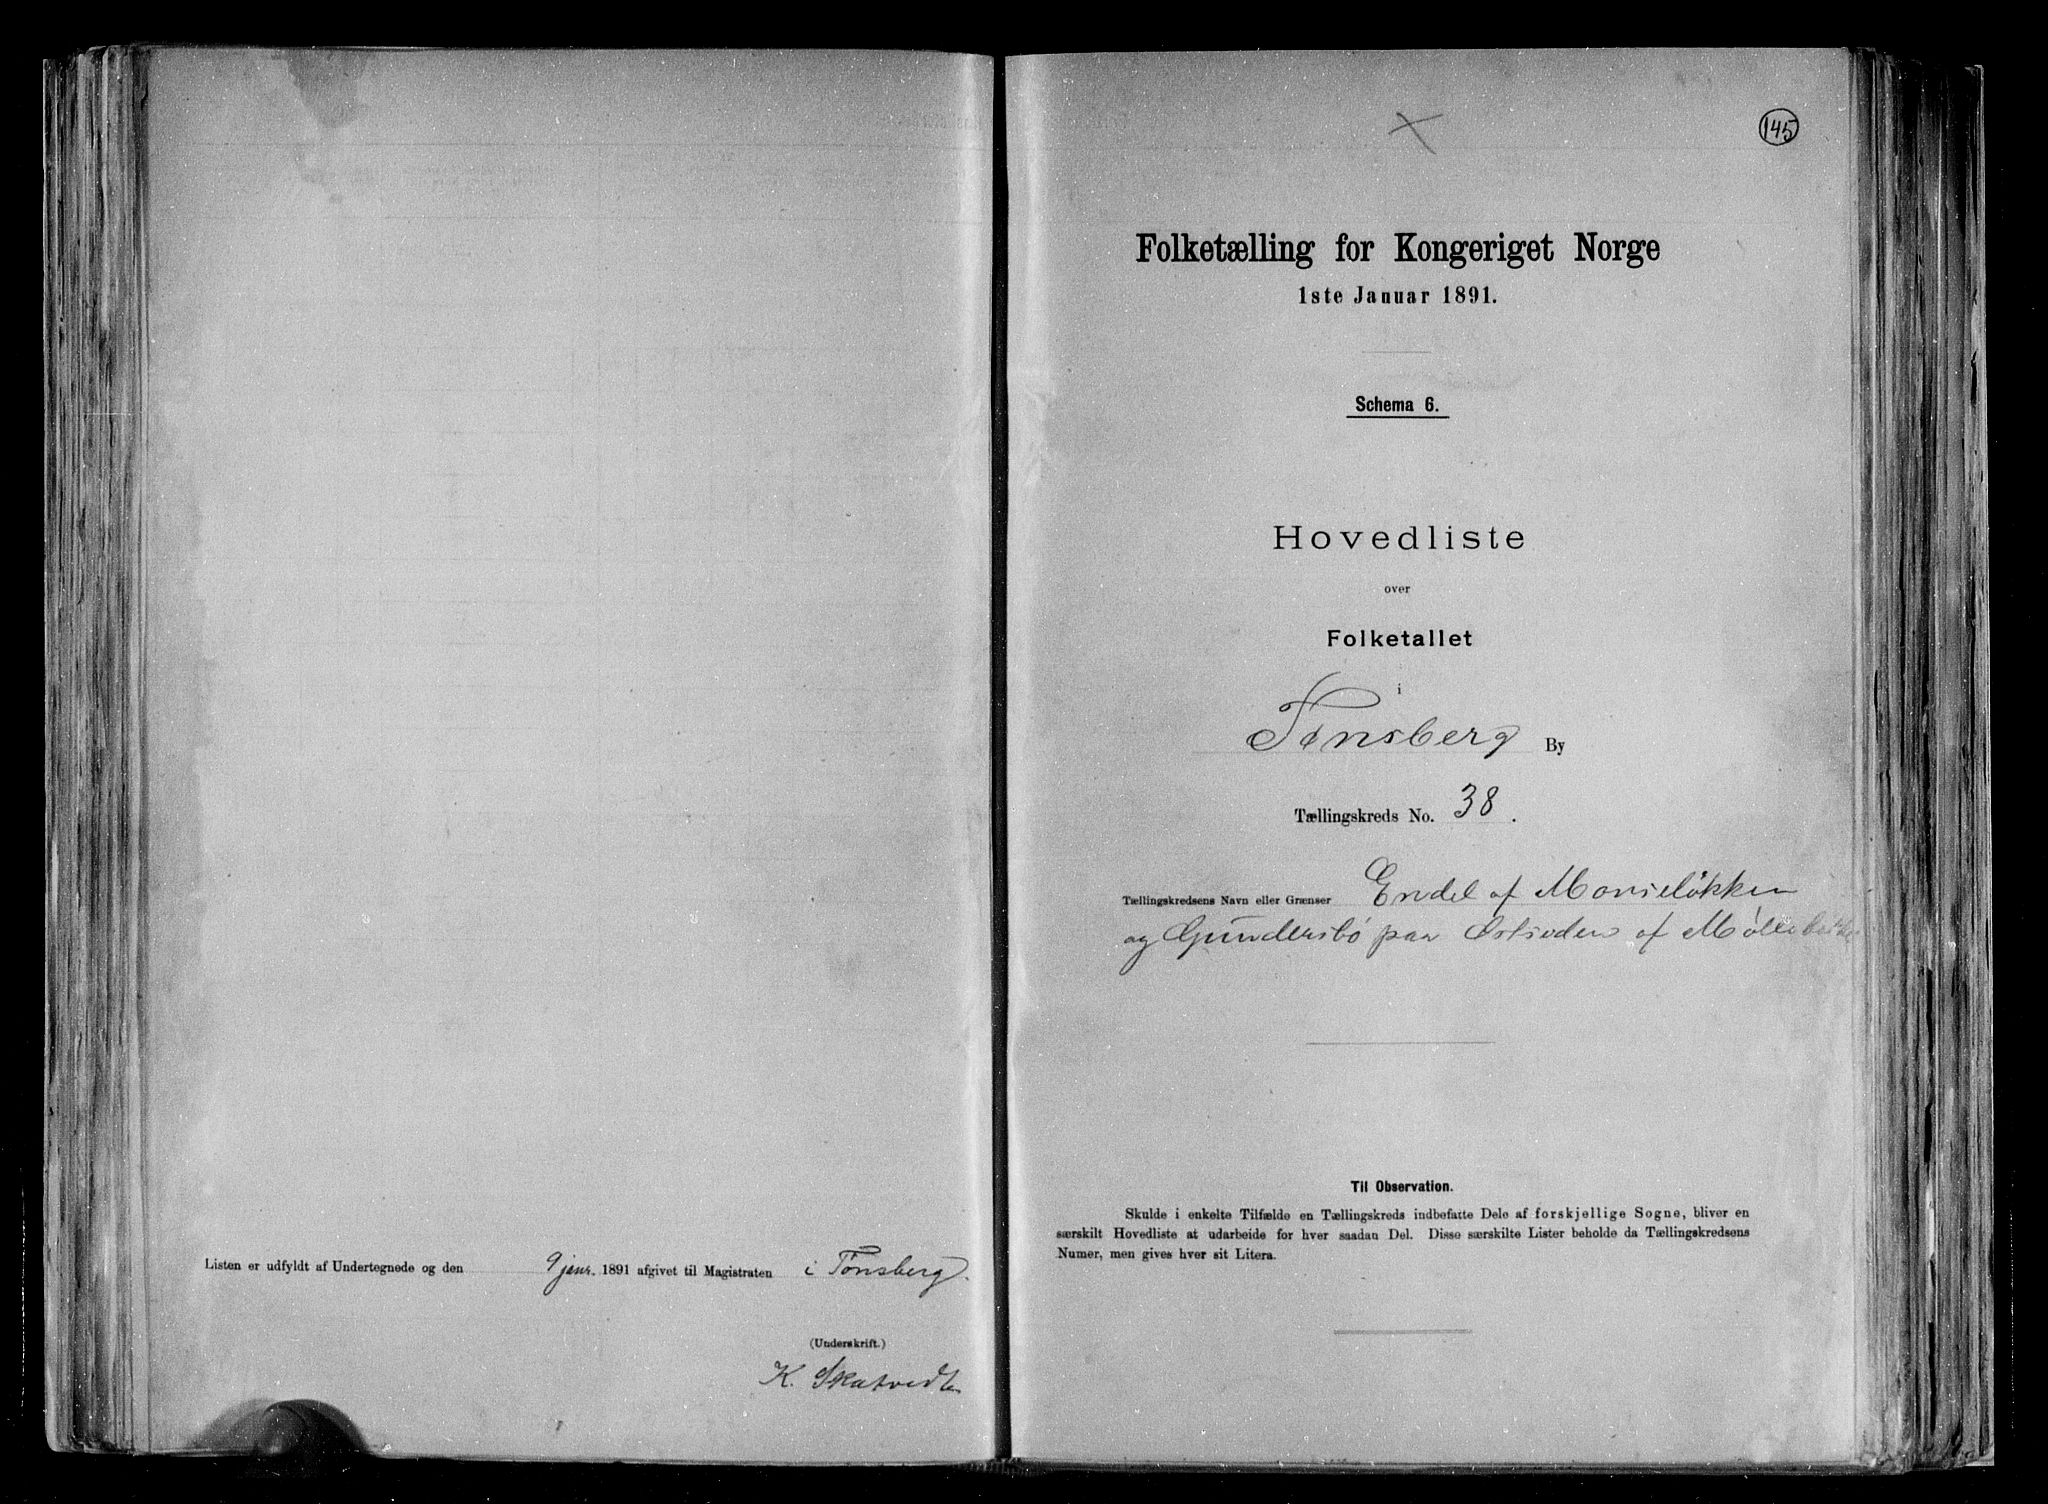 Listen er udfyldt af Undertegnede og den 9 janr. 1891 afgivet til Magistraten i Tønsberg.
(Underskrift.)
K. Skatvedt
145
Folketælling for Kongeriget Norge
1ste Januar 1891.
Schema 6.
Hovedliste
over
Folketallet
i
Tønsberg By
Tællingskreds No. 38.
Tællingskredsens Navn eller Grænser Endel af Monseløkken
og Gundersbø paa Østsiden af
Til Observation.
Skulde i enkelte Tilfælde en Tællingskreds indbefatte Dele af forskjellige Sogne, bliver en
særskilt Hovedliste at udarbeide for hver saadan Del. Disse særskilte Lister beholde da Tællingskredsens
Numer, men gives hver sit Litera.